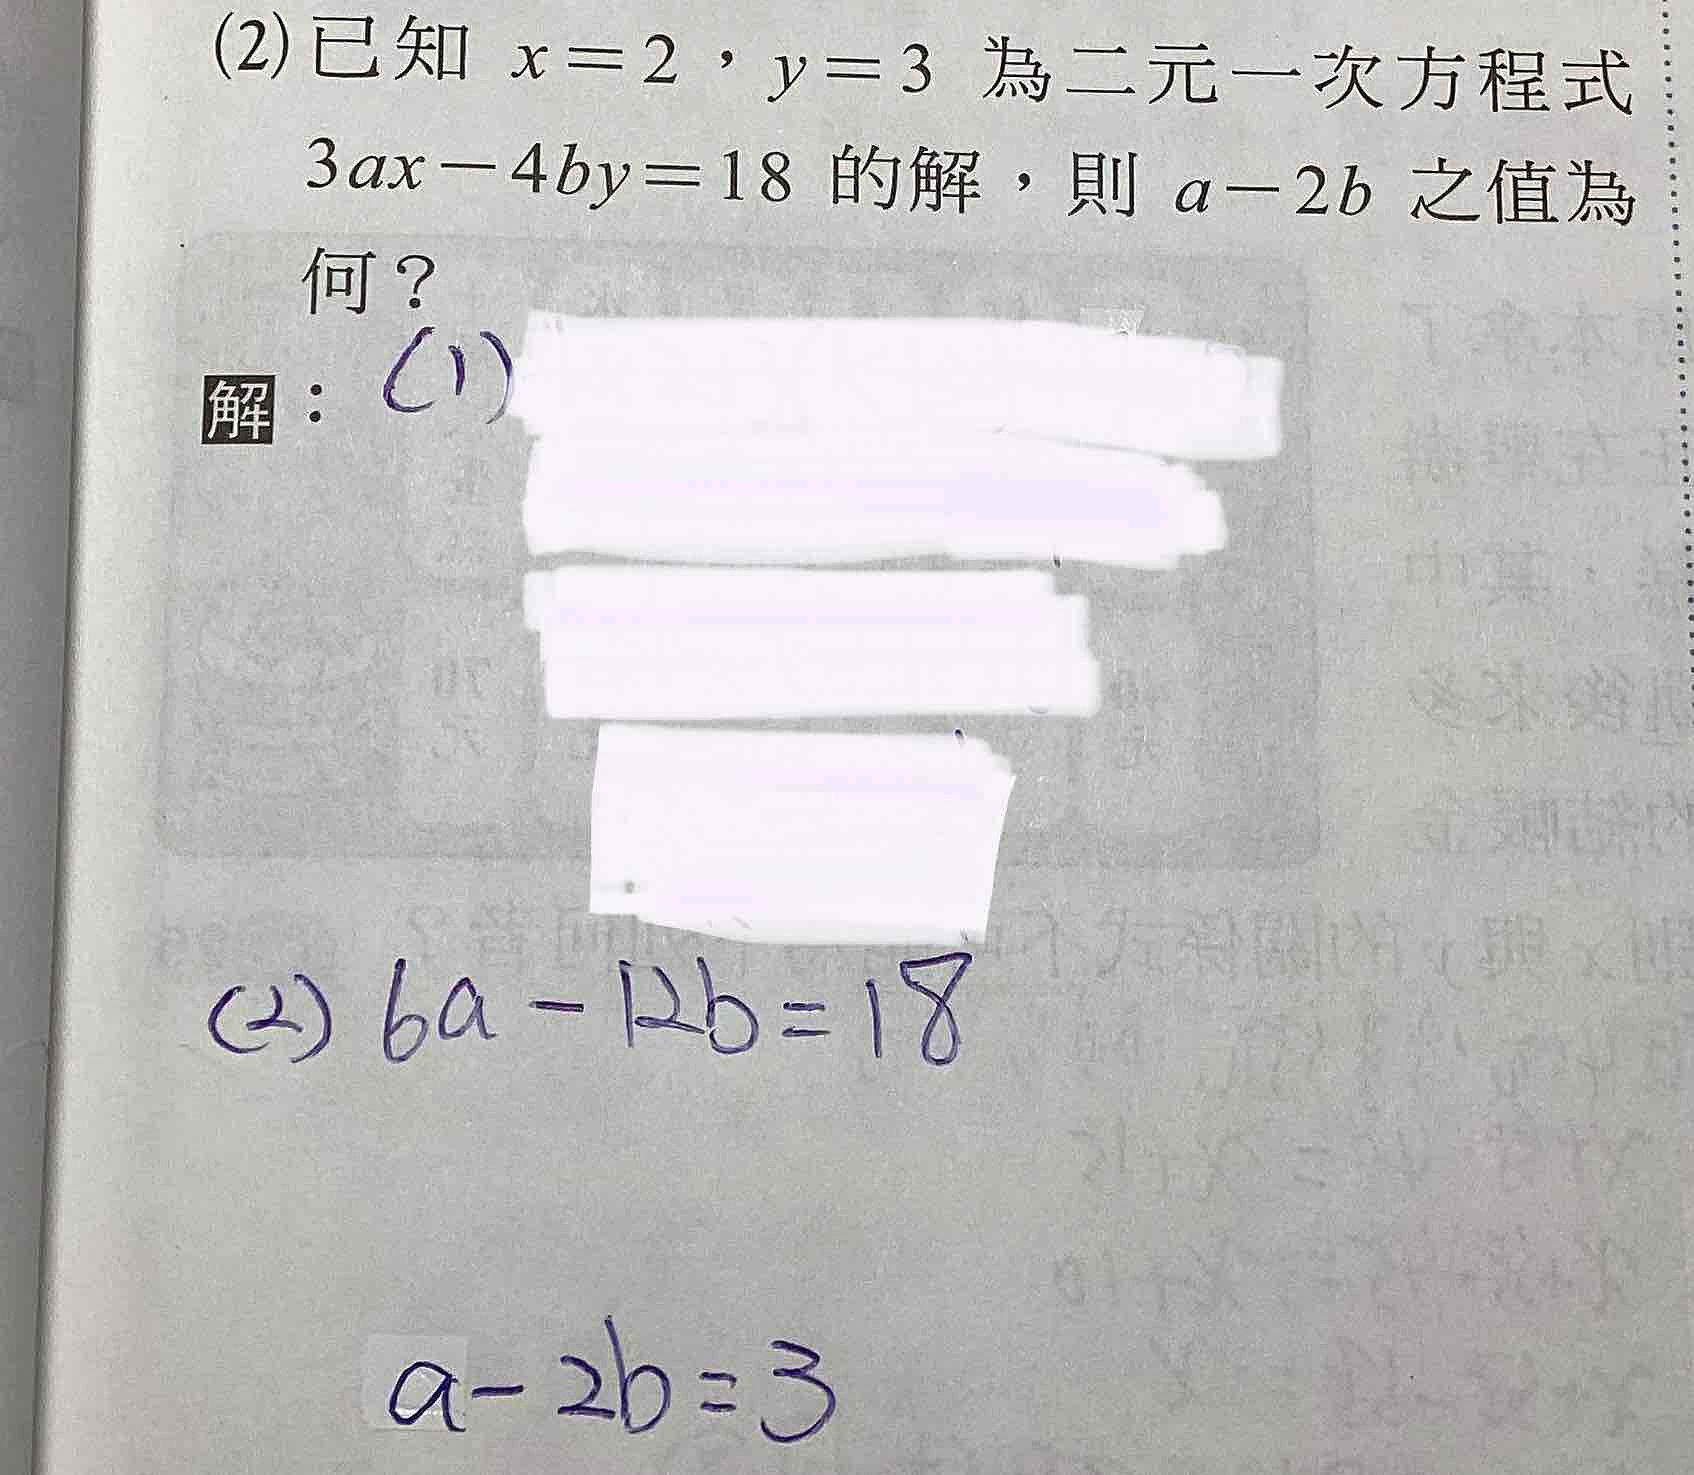 (2)已知 x=2，y=3 為二元一次方程式
3ax-4by=18 的解，則 a-2b 之值為
何？
解：(1)
(2) 6a-12b=18
a-2b=3